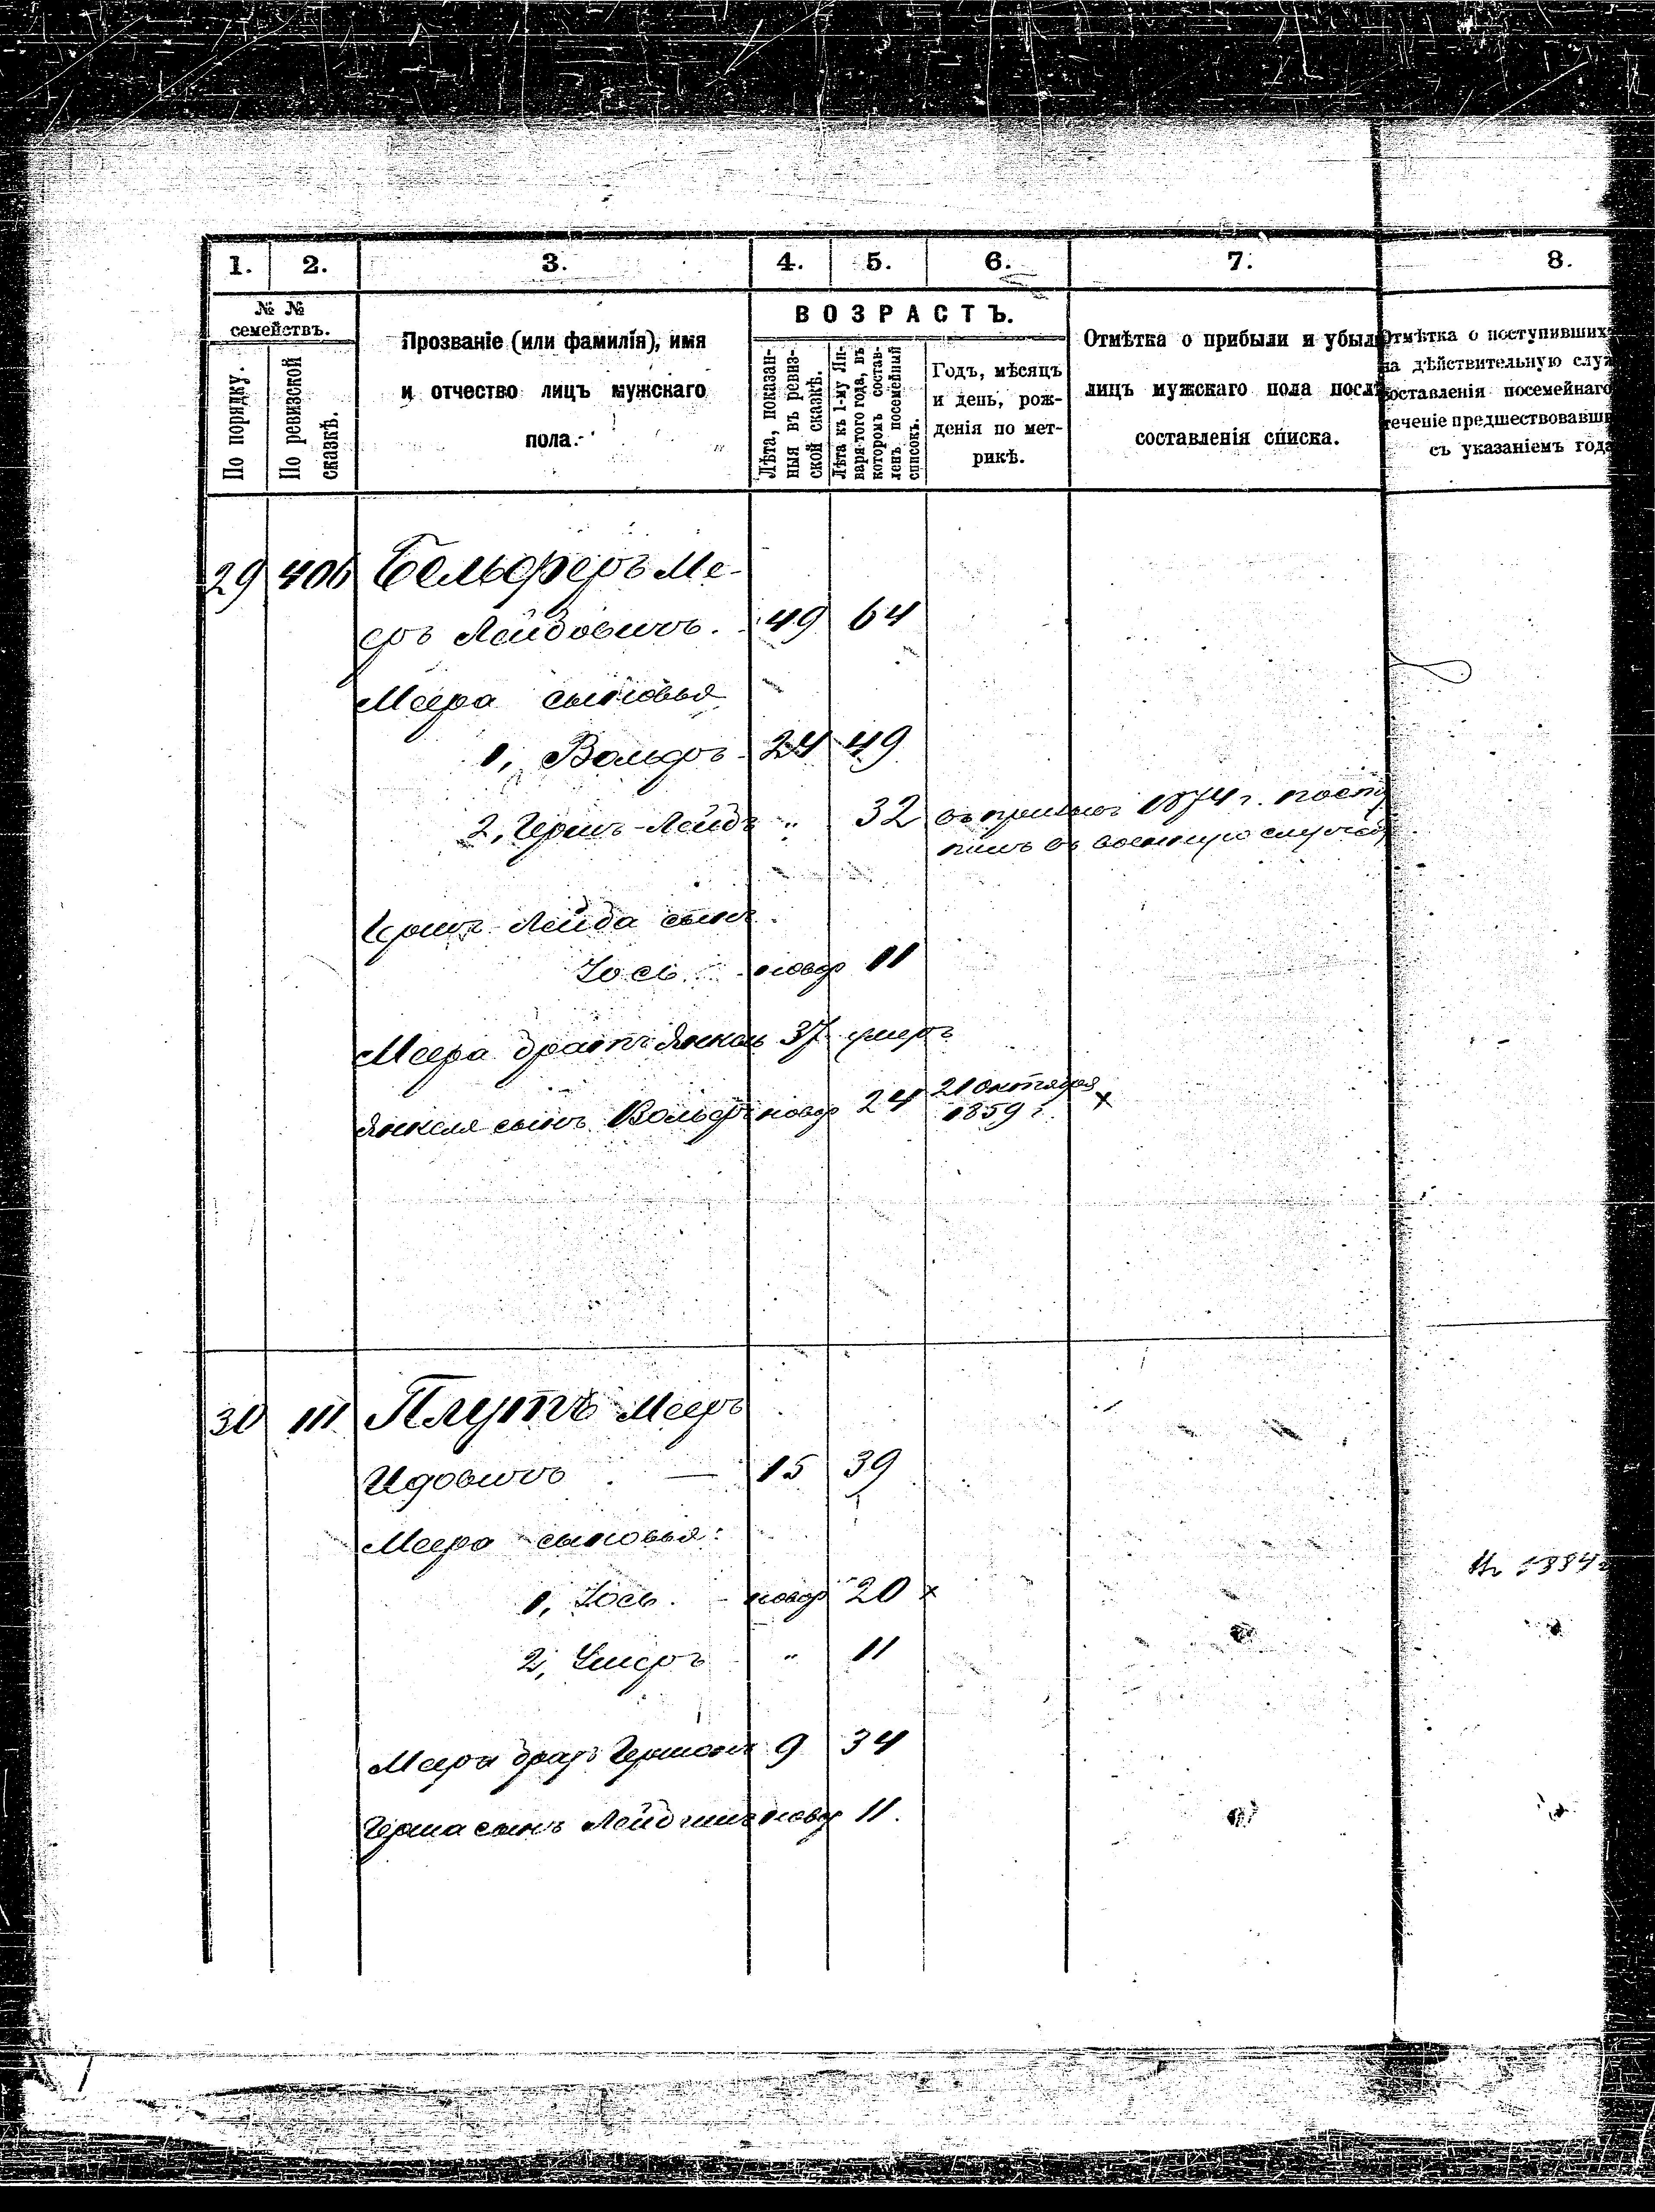 1. 2. 3. 4. 5. 6. 7. 8.
№ № семействъ.
По порядку.
По ревизской сказкѣ.
Прозваніе (или фамилія), имя
и отчество лицъ мужскаго
пола.
ВОЗРАСТЪ.
Лѣта, показан-
ныя въ ревиз-
ской сказкѣ.
Лѣта къ 1-му Ян-
варя того года, въ
которомъ состав-
ленъ посемейный
списокъ.
Годъ, мѣсяцъ
и день, рож-
денія по мет-
рикѣ.
Отмѣтка о прибыли и убыли
лицъ мужскаго пола послѣ
составленія списка.
Отмѣтка о поступивших
на дѣйствительную служ
составленія посемейнаго
теченіе предшествовавши
съ указаніемъ года
29 406 Бельферъ Ме-
еръ Лейбовичъ. 49 64
Меера сыновья
1, Вольфъ 24 49
2, Гершъ-Лейбъ " 32 въ призывъ 1874 г. посту
пилъ въ военную службу
Гершъ Лейба сынъ
Іось новор 11
Меера братъ Янкель 37 умеръ
Янкеля сынъ Вольфъ новор 24 21 октября
1859 г. х
30 111 Плутъ Мееръ
Идовичъ — 15 39
Меера сыновья:
1, Іось. новор 20 х
2, " 11
Меера братъ Гершонъ 9 34
Герша сынъ новор 11.
1884